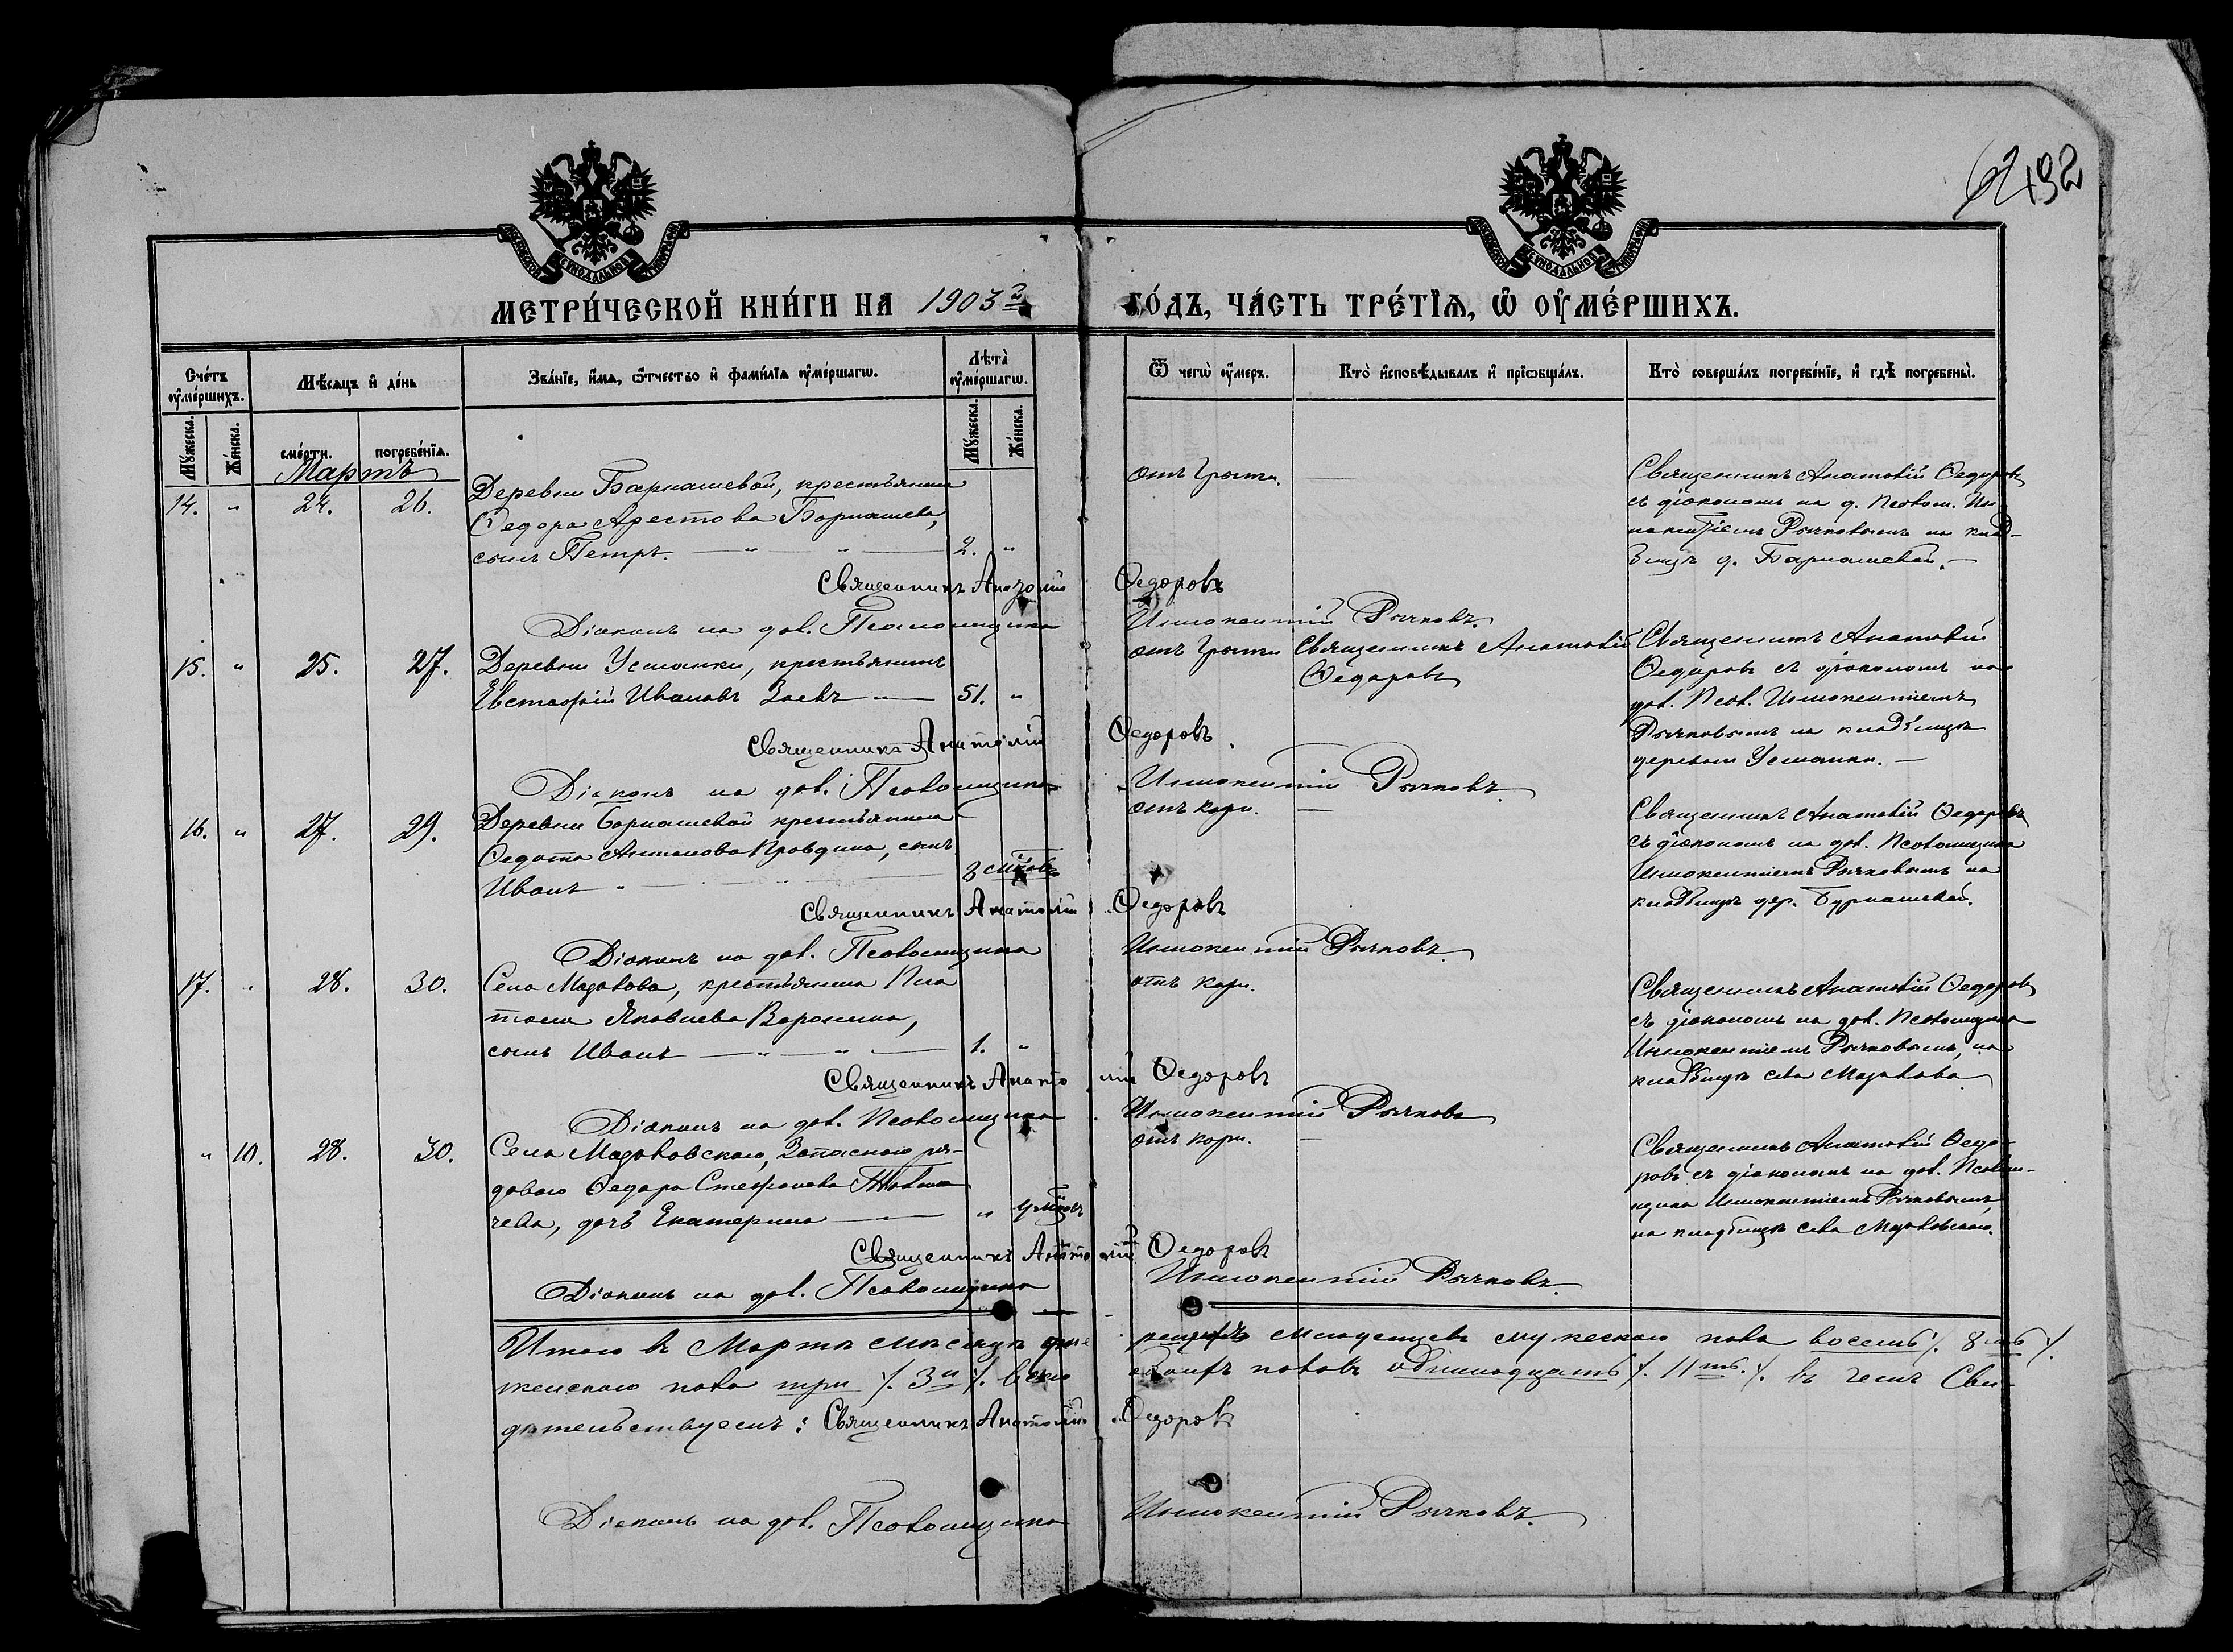 62 192
МЕТРИ́ЧЕСКОЙ КНИ́ГИ НА 1903 ГО́ДЪ, ЧА́СТЬ ТРЕ́ТІѦ, Ѡ ОУМЕ́РШИХЪ.
Сче́тъ оумершихъ.
Мꙋжеска.
Же́нска.
Мѣсѧцъ и де́нь
сме́рти.
погребе́нїѧ.
Зва́нїе, и҆́мѧ, ѻ҆́тчество и҆ фами́лїѧ оумершагѡ.
Лѣта̀ оумершагѡ.
Мꙋжеска.
Же́нска.
Ѿ чегѡ̀ оумеръ.
Кто̀ и҆сповѣ́дывалъ и҆ прїѡбща́лъ.
Кто̀ соверша́лъ погребе́нїе, и҆ гдѣ̀ погребены̀.
Мартъ
14. " 24. 26.
Деревни Барнашевой, крестьянина
Ѳедора Арестова Барнашева,
сынъ Петръ. — " — " — 2. "
отъ грыжи. —
Священникъ Анатолій Ѳедоровъ
съ діакономъ на д. Псалом. Ин-
нокентіемъ Рычковымъ на клад-
бищѣ д. Барнашевой. —
Священникъ Анатолій Ѳедоровъ
Діаконъ на дол. Псаломщика Иннокентій Рычковъ.
15. " 25. 27.
Деревни Усманки, крестьянинъ
Евстафій Ивановъ Заевъ " — 51. "
отъ грыжи
Священникъ Анатолій
Ѳедоровъ
Священникъ Анатолій
Ѳедоровъ съ діакономъ на
дол. Псал. Иннокентіемъ
Рычковымъ на кладбищѣ
деревни Усманки. —
Священникъ Анатолій Ѳедоровъ
Діаконъ на дол. Псаломщика Иннокентій Рычковъ.
16. " 27. 29.
Деревни Барнашевой крестьянина
Ѳедота Антонова Правдина, сынъ
Иванъ " — " — 3
отъ кори. —
Священникъ Анатолій Ѳедоровъ
съ діакономъ на дол. Псаломщика
Иннокентіемъ Рычковымъ на
кладбищѣ дер. Бурнашевой.
Священникъ Анатолій Ѳедоровъ
Діаконъ на дол. Псаломщика Иннокентій Рычковъ.
17. " 28. 30.
Села Малокова, крестьянина Пла
тона Яковлева Воронина,
сынъ Иванъ — " — " — 1. "
отъ кори.
Священникъ Анатолій Ѳедоровъ
съ діакономъ на дол. Псаломщика
Иннокентіемъ Рычковымъ, на
кладбищѣ села
Священникъ Анатолій Ѳедоровъ
Діаконъ на дол. Псаломщика Иннокентій Рычковъ
" 10. 28. 30.
Села запаснаго ря-
доваго Ѳедора Стефанова
чева, дочь Екатерина — "
отъ кори. —
Священникъ Анатолій Ѳедо-
ровъ съ діакономъ на дол. Псалом-
щика Иннокентіемъ Рычковымъ,
на кладбищѣ села
Священникъ Анатолій Ѳедоровъ
Діаконъ на дол. Псаломщика Иннокентій Рычковъ.
Итого въ Мартѣ мѣсяцѣ младенцевъ мужескаго пола восемь ·/. 8 мь ·/.
женскаго пола три ·/. 3 и ·/. всего обоихъ половъ одиннадцать ·/. 11 ть ·/. въ чемъ Сви-
дѣтельствуемъ: Священникъ Анатолій Ѳедоровъ
Діаконъ на дол. Псаломщика Иннокентій Рычковъ.